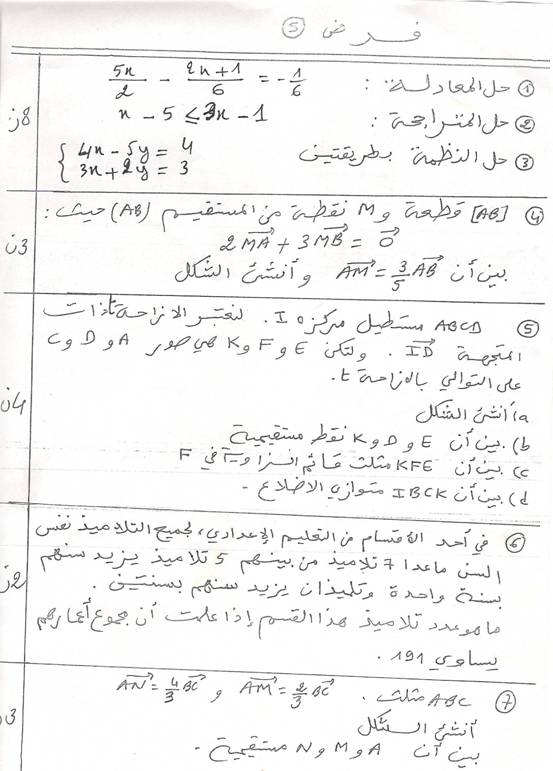 فرض ⑤
① حل المعادلة : 5x/2 - 2x+1/6 = -1/6
② حل المتراجحة : x - 5 ≤ 3x - 1
③ حل النظمة بطريقتين { 4x - 5y = 4
3x + 2y = 3
8ن
④ [AB] قطعة و M نقطة من المستقيم (AB) حيث :
2MA + 3MB = 0
بين أن AM = 3/5 AB و أنشئ الشكل
3ن
⑤ ABCD مستطيل مركزه I . لنعتبر الازاحة t ذات
المتجهة ID . ولتكن E و F و K هي صور A و D و C
على التوالي بالازاحة t.
a) أنشئ الشكل
b) بين أن E و D و K نقط مستقيمية
c) بين أن KFE مثلث قائم الزاوية في F
d) بين أن IBCK متوازي الاضلاع -
4ن
⑥ في أحد الأقسام من التعليم الإعدادي، لجميع التلاميذ نفس
السن ماعدا 7 تلاميذ من بينهم 5 تلاميذ يزيد سنهم
بسنة واحدة وتلميذان يزيد سنهم بسنتين .
ما هو عدد تلاميذ هذا القسم إذا علمت أن مجموع أعمارهم
يساوي 191 .
2ن
⑦ ABC مثلث . AM = 2/3 BC و AN = 4/3 BC
أنشئ الشكل
بين أن A و M و N مستقيمية -
3